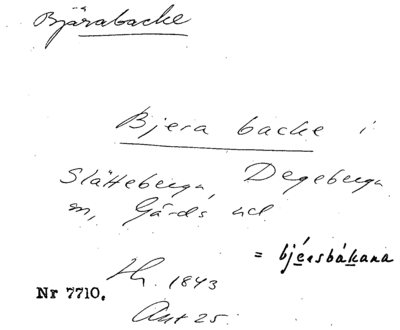 Bjärabacke
Bjera backe i
Slätteberga, Degeberga
sn, Gärds hd
= bjérsbákana
Nr 7710.
1843
Ant 25